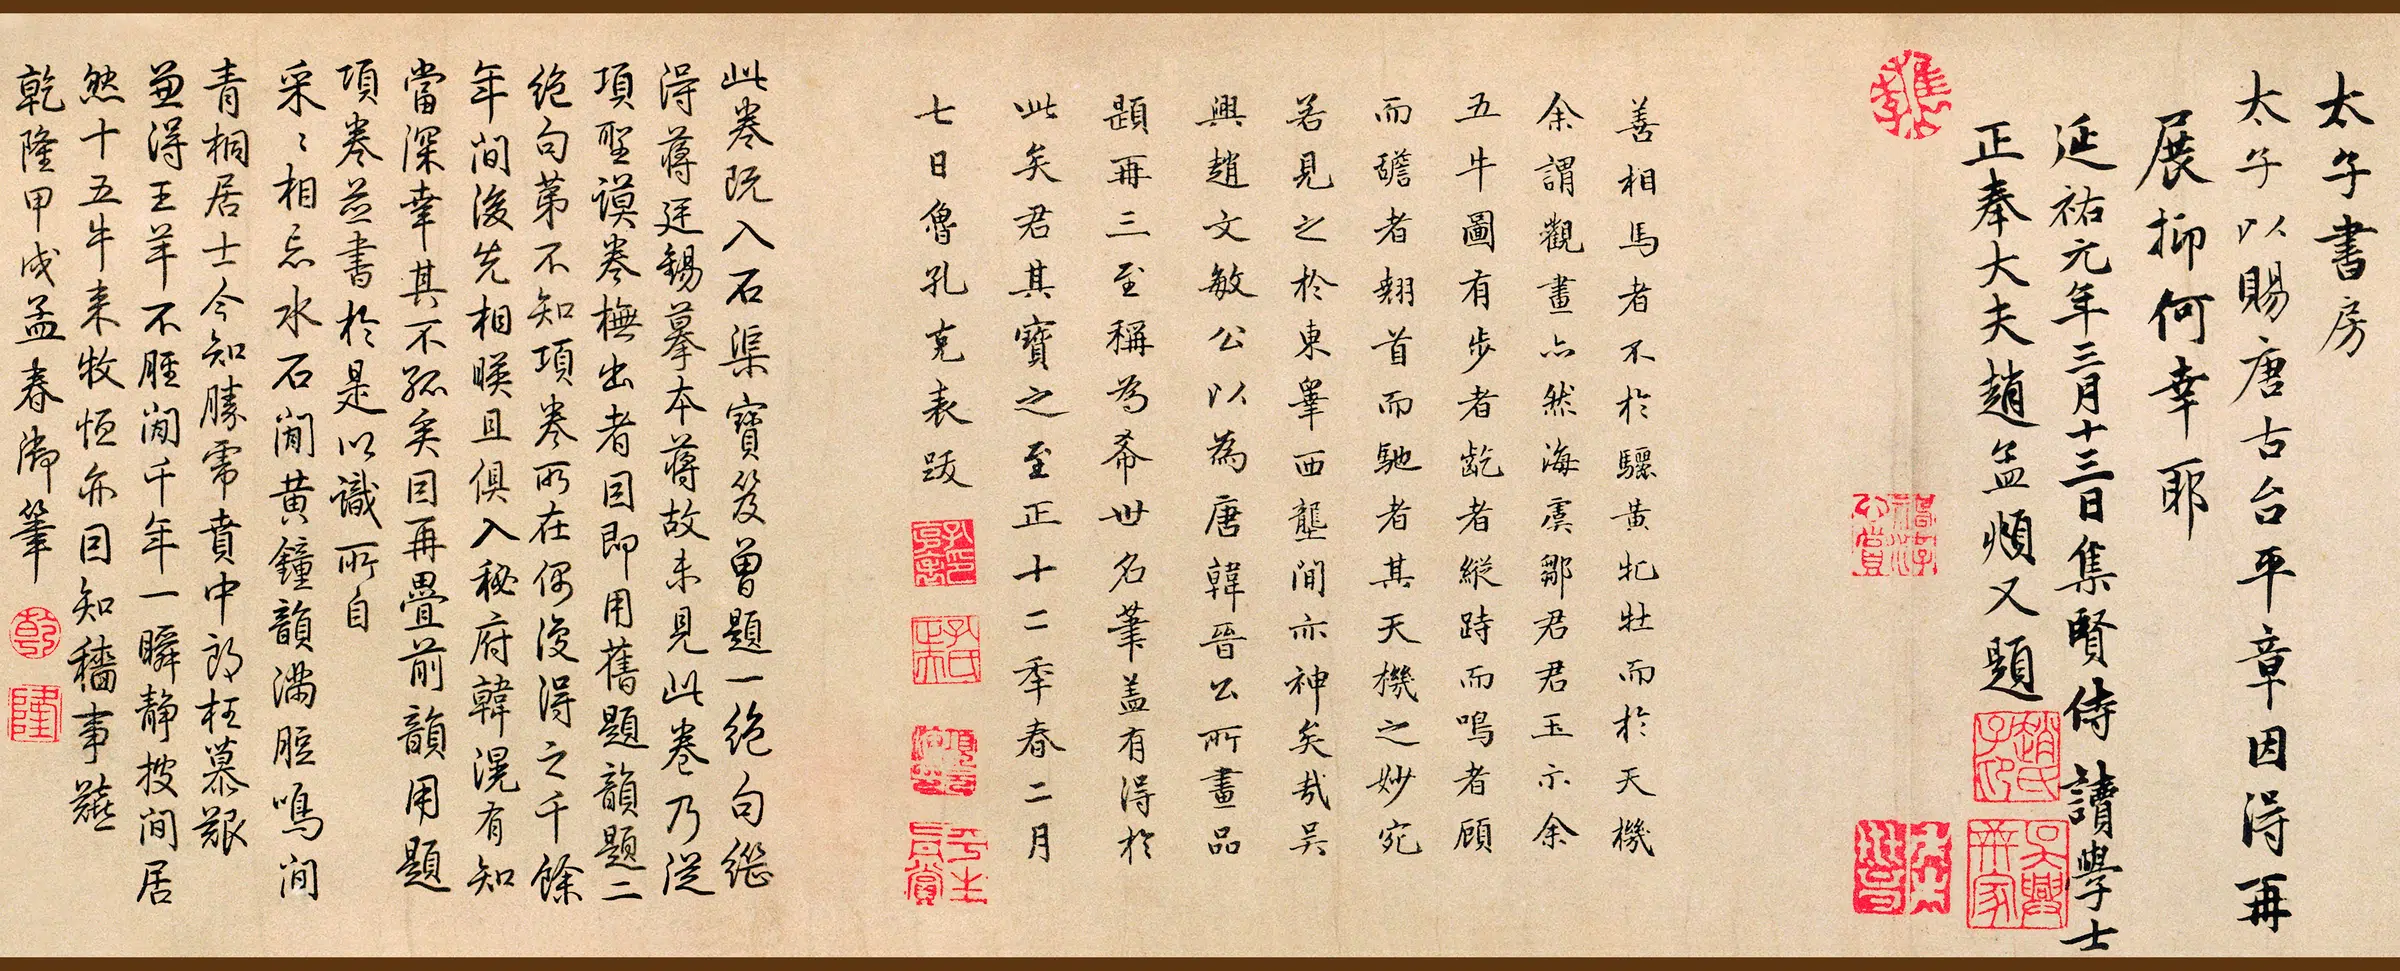 太子書房
太子以賜唐古台平章因得再
展抑何幸耶
延祐元年三月十三日集賢侍讀學士
正奉大夫趙孟頫又題
趙氏子昂
善相馬者不於驪黄牝牡而於天機
余謂觀畫亦然海虞鄒君君玉示余
五牛圖有步者齕者縱跱而鳴者顧
而䑛者翹首而馳者其天機之妙宛
若見之於東皐西壟間亦神矣哉吴
興趙文敏公以為唐韓晉公所畫品
題再三至稱為希世名筆盖有得於
此矣君其寶之至正十二季春二月
七日魯孔克表跋
此卷既入石渠寶笈曾題一絶句繼
得蔣廷錫摹本蔣故未見此卷乃從
項聖謨卷橅出者因即用舊題韻題二
絶句第不知項卷所在偶復得之千餘
年間後先相暎且俱入秘府韓滉有知
當深幸其不孤矣因再疊前韻用題
項卷并書於是以識所自
采〻相忘水石閒黄鐘韻滿脰鳴間
青桐居士今知勝帝賁中郎枉慕艱
兼得王羊不脛閒千年一瞬静披間居
然十五牛来牧恒亦因知穡事艱
乾隆甲戌孟春御筆
乾
隆